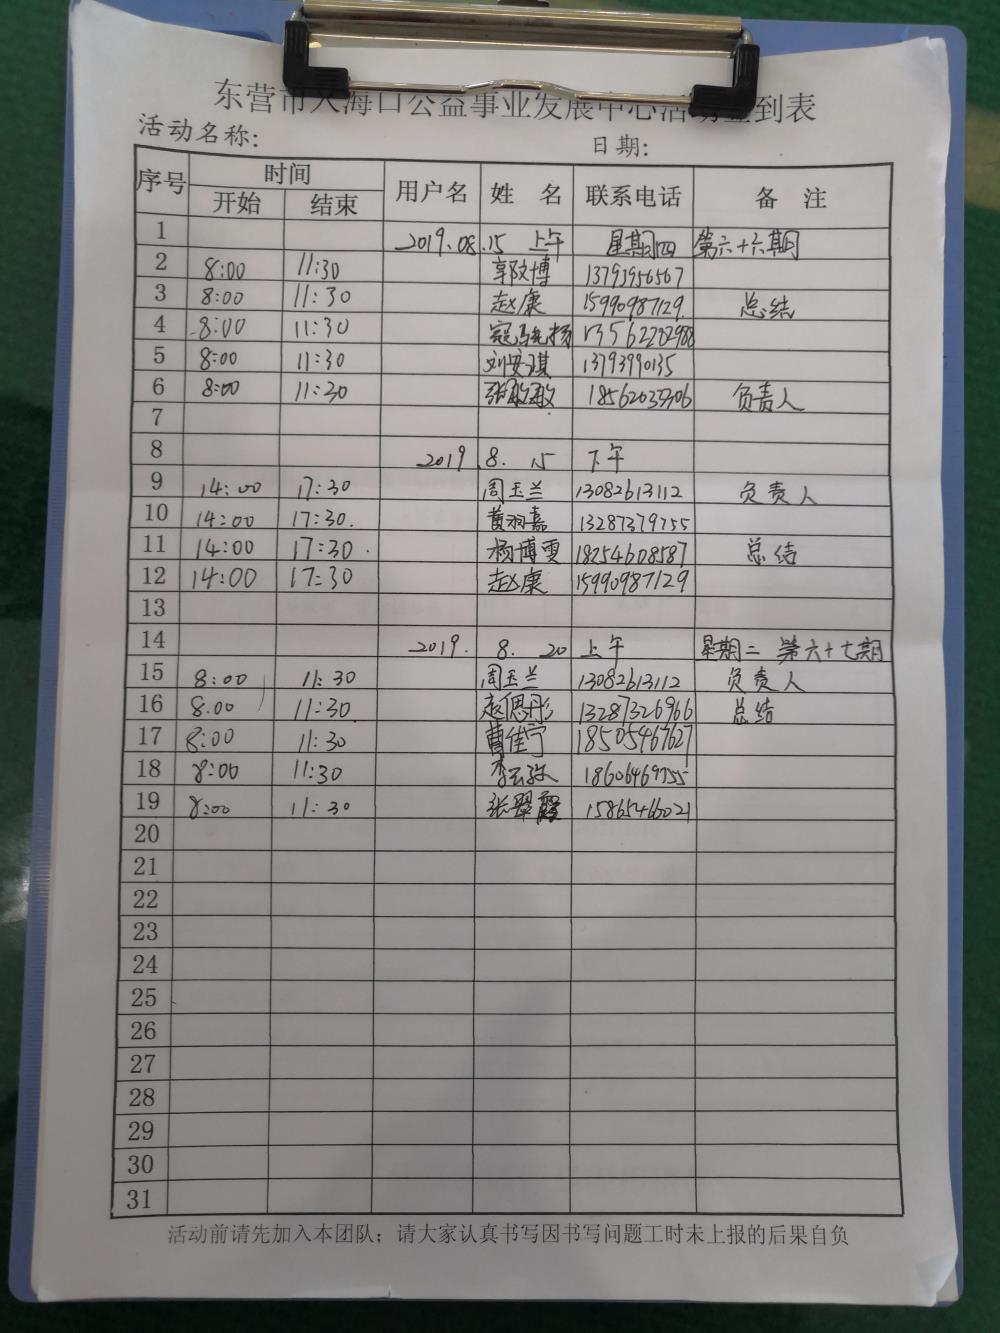 东营市大海口公益事业发展中心活动签到表
活动名称: 日期:
序号 时间 用户名 姓 名 联系电话 备 注
开始 结束
1 2019.08.15 上午 星期四 第六十六期
2 8:00 11:30 郭文博 13793956567
3 8:00 11:30 赵康 15990987129 总结
4 8:00 11:30 13562202988
5 8:00 11:30 刘安淇 13793990135
6 8:00 11:30 张敏敏 负责人
7
8 2019.8.15 下午
9 14:00 17:30 周玉兰 13082613112 负责人
10 14:00 17:30. 黄羽嘉 13287379755
11 14:00 17:30. 杨博雯 18254608587 总结
12 14:00 17:30 赵康 15990987129
13
14 2019.8.20 上午 星期二 第六十七期
15 8:00 11:30 周玉兰 13082613112 负责人
16 8:00 11:30 赵偲彤 13287326966 总结
17 8:00 11:30 曹佳宁 18505467627
18 8:00 11:30 18606469755
19 8:00 11:30 张翠霞 15865466021
20
21
22
23
24
25
26
27
28
29
30
31
活动前请先加入本团队；请大家认真书写因书写问题工时未上报的后果自负